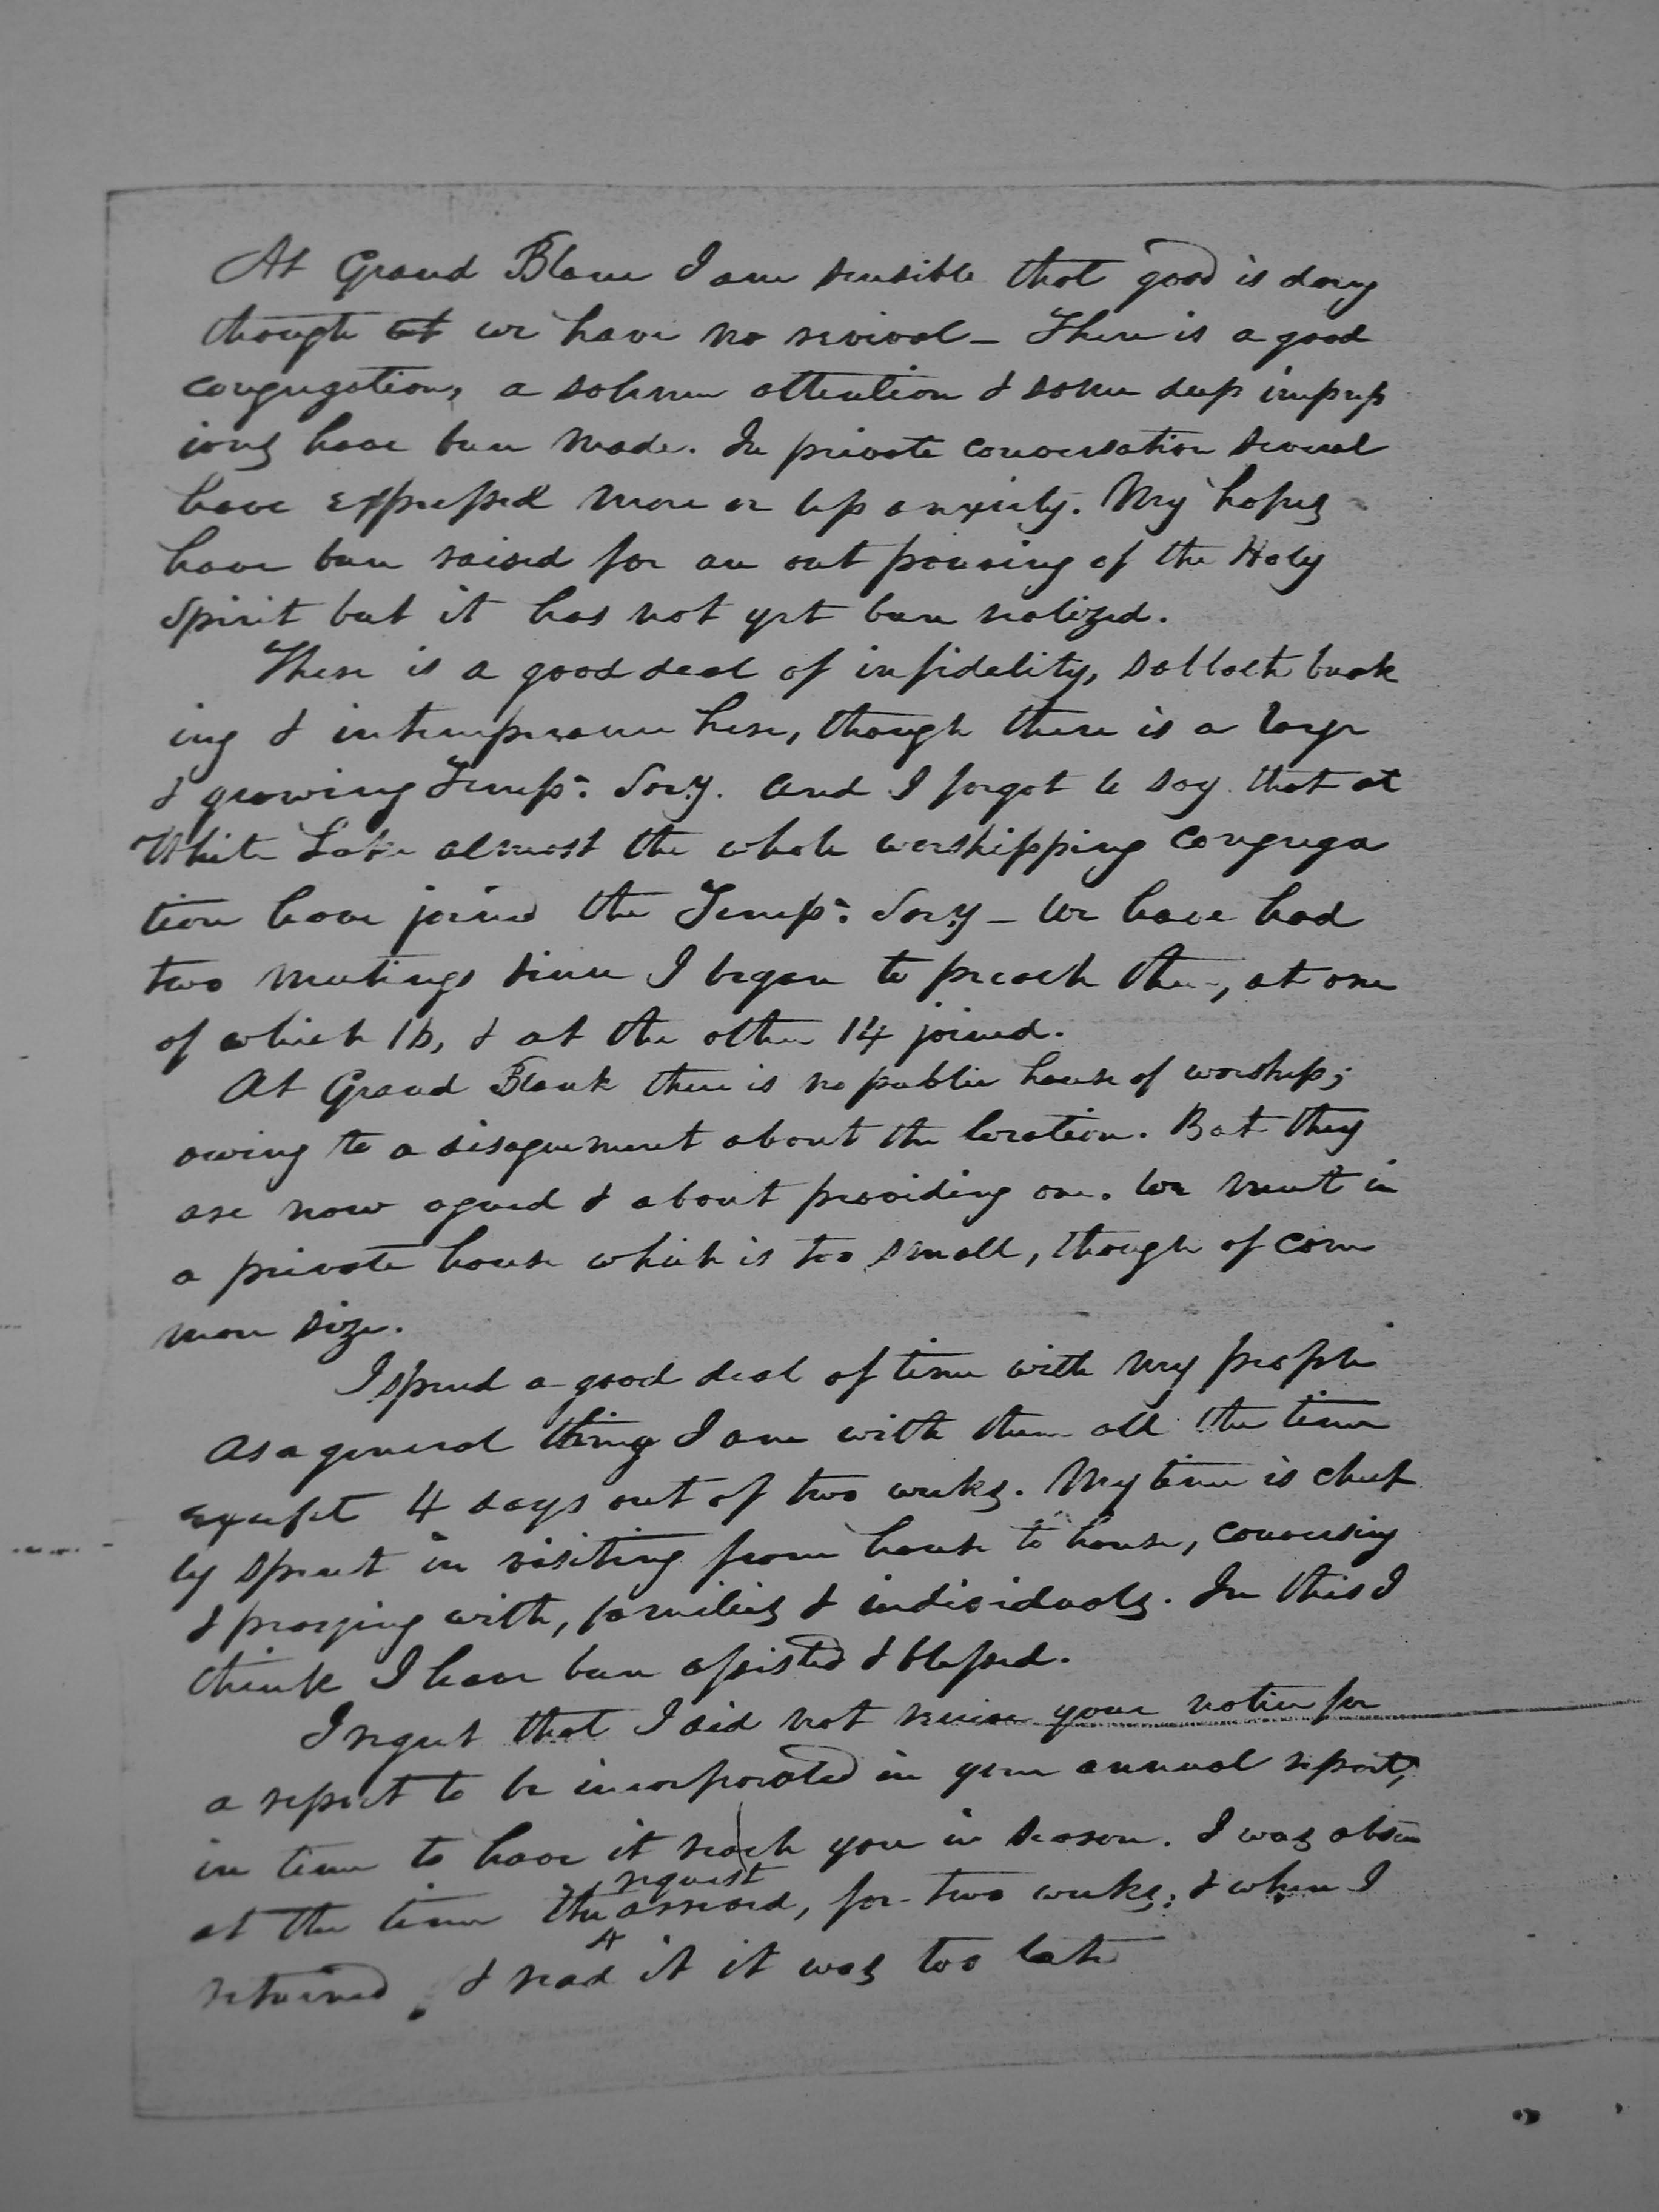 At Grand Blanc I am sensible that good is doing
though at we have no revival – There is a good
congregation, a solemn attention & some deep impress
ions have been made. In private conversation several
have expressed more or less anxiety. My hopes
have been raised for an out pouring of the Holy
Spirit but it has not yet been realized.
There is a good deal of infidelity, sabbath break
ing & intemperance here, though there is a large
& growing Temp. Socy. and I forgot to say that at
White Lake almost the whole worshipping congrega
tion have joined the Temp. Socy – We have had
two meetings since I began to preach there, at one
of which & at the other 14 joined.
At Grand Blank there is no public house of worship;
owing to a disagreement about the location. But they
are now agreed & about providing one. We meet in
a private house which is too small, though of com
mon size.
I spend a good deal of time with my people
As a general thing I am with them all the time
except 4 days out of two weeks. My time is chief
ly spent in visiting from house to house, conversing
& praying with, families & individuals. In this I
think I have been assisted & blessed.
I regret that I did not receive your notice for
a report to be incorporated in your annual report,
in time to have it reach you in season. I was absen
request
at the time the arrived, for two weeks; & when I
returned & read it it was too late